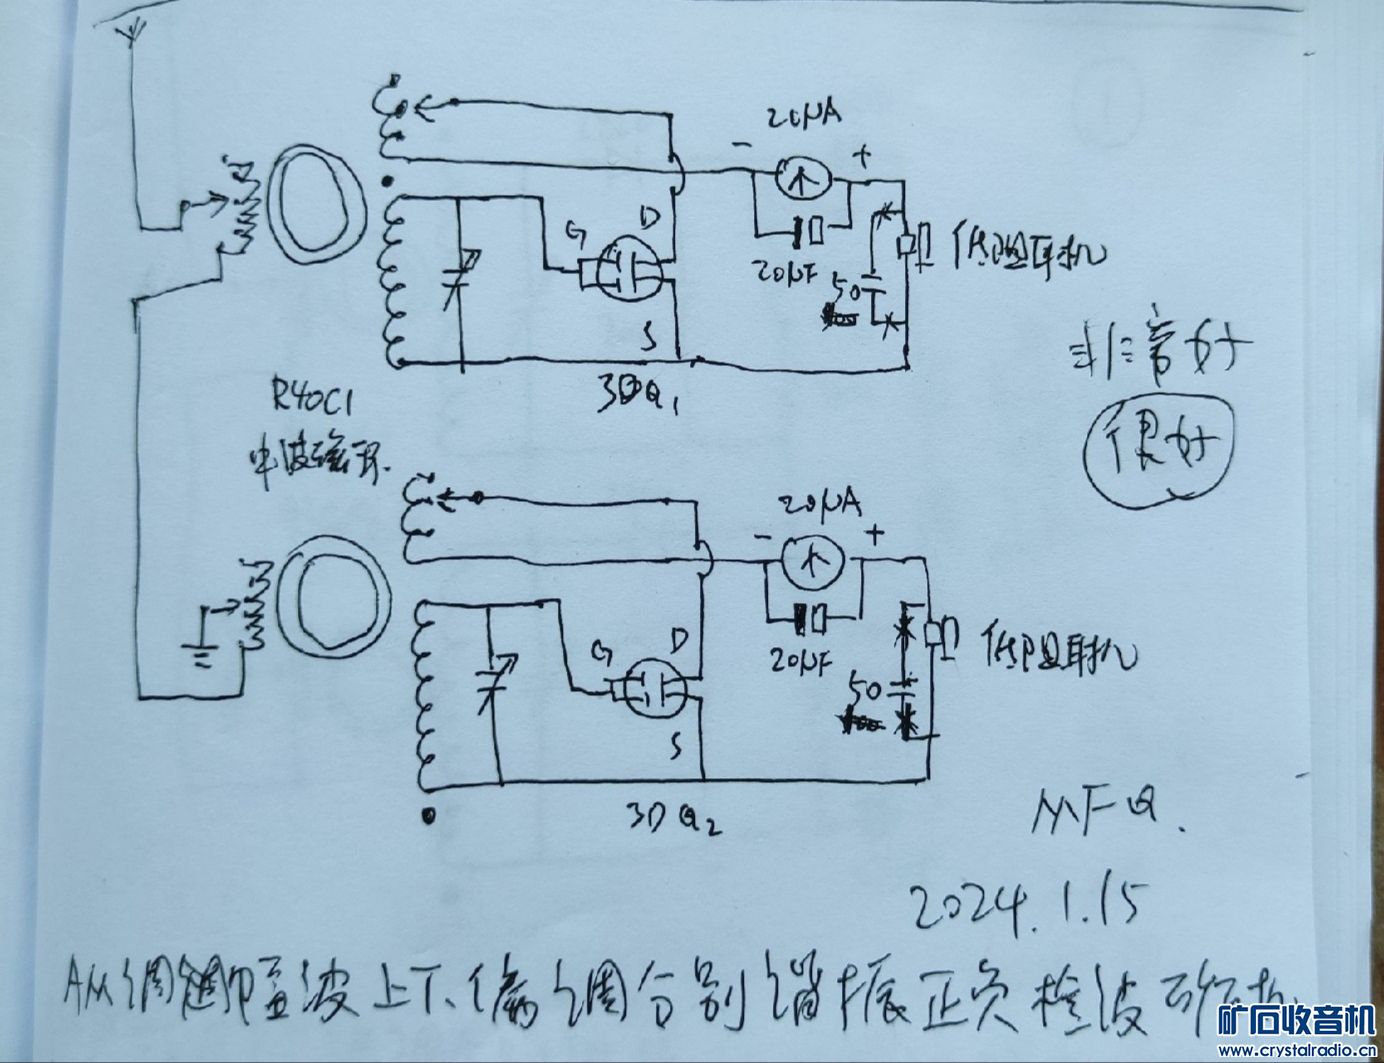 20μA
-
+
G
D
S
20μF
50
低阻耳机
3DQ1
R40C1
中波磁环.
非常好
很好
20μA
-
+
G
D
S
20μF
50
低阻耳机
3DQ2
MFQ.
2024.1.15
AM调幅波上下偏调分别谐振正负检波矿机.
矿石收音机
www.crystalradio.cn